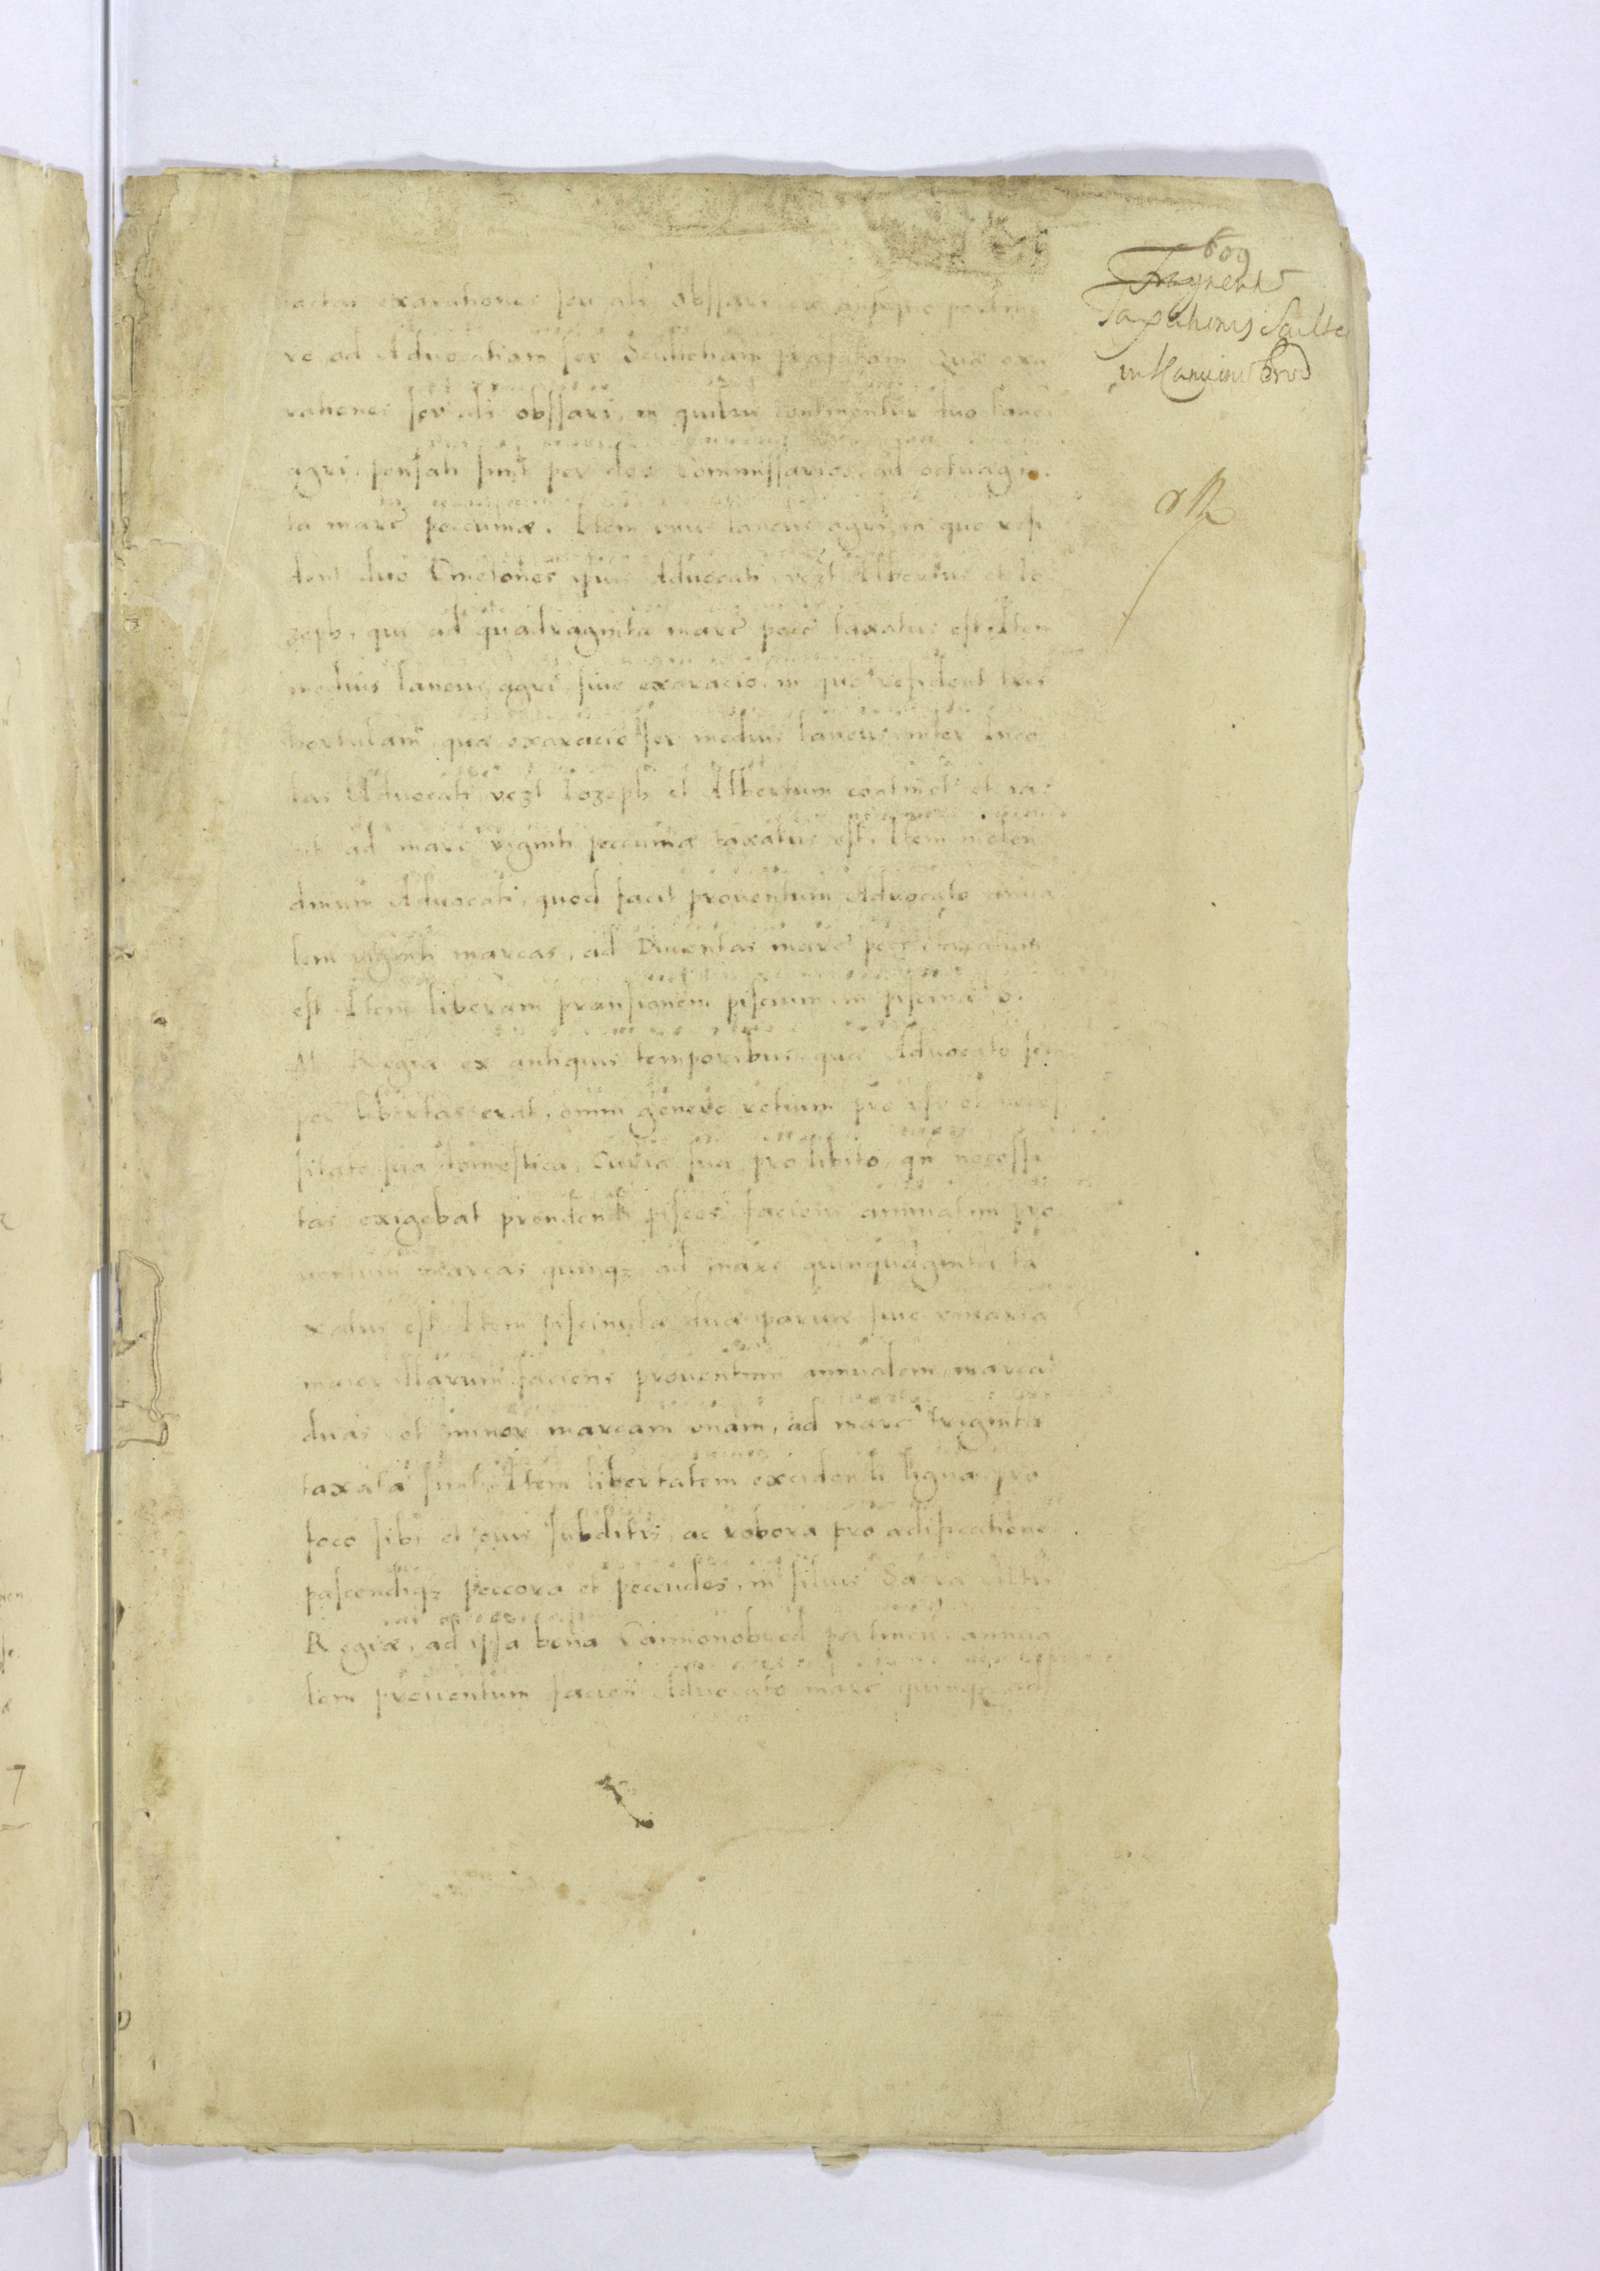 609
Fragment
Taxationis Scult
in Kamion Brod
exarationes seu ali obssari
re ad Advocatiam seu Scultetiam prefatam Quæ exa
rationes seu ali obssari, in quibus continentur duo lanei
agri, pensati sunt per dos Commissarios ad octuagin
ta marc peccuniæ. Item unus laneus agri, in quo resi
dent duo Cmetones ipsius Advocati, vezt Albertus et Io
zeph, qui ad quadraginta marc pecc taxatus est. Item
medius laneus agri sive exaracio, in quo resident tres
hortulani, quæ exaracio seu medius laneus inter Inco
las Advocati vezt Iozeph et Albertum continet et ia
cet ad marc viginti peccuniæ taxatus est. Item molen
dinum Advocati, quod facit proventum Advocato annua
lem viginti marcas, ad Ducentas marc pecc taxatum
est. Item liberam prensionem piscium in piscina S.
M. Regiæ ex antiquis temporibus, quæ Advocato sem
per libertas erat, omni genere retium pro usu et neces
sitate sua domestica, Curiæ suæ, pro libito, qn necessi
tas exigebat prendendi pisces, faciens annuatim pro
ventum marcas quinqz, ad marc quinquaginta ta
xatus est. Item piscinula duæ parvæ sive vivaria
maior illarum faciens proventum annualem, marcas
duas, et minor marcam unam, ad marc triginta
taxata sunt. Item libertatem excidendi ligna pro
foco sibi et suis subditis, ac robora pro ædificatione
pascendiqz peccora et peccudes, in silvis Sacræ Mttis
Regiæ, ad ipsa bona Camionobrod pertinen, annua
lem proventum facien Advocato marc quinqz, ad